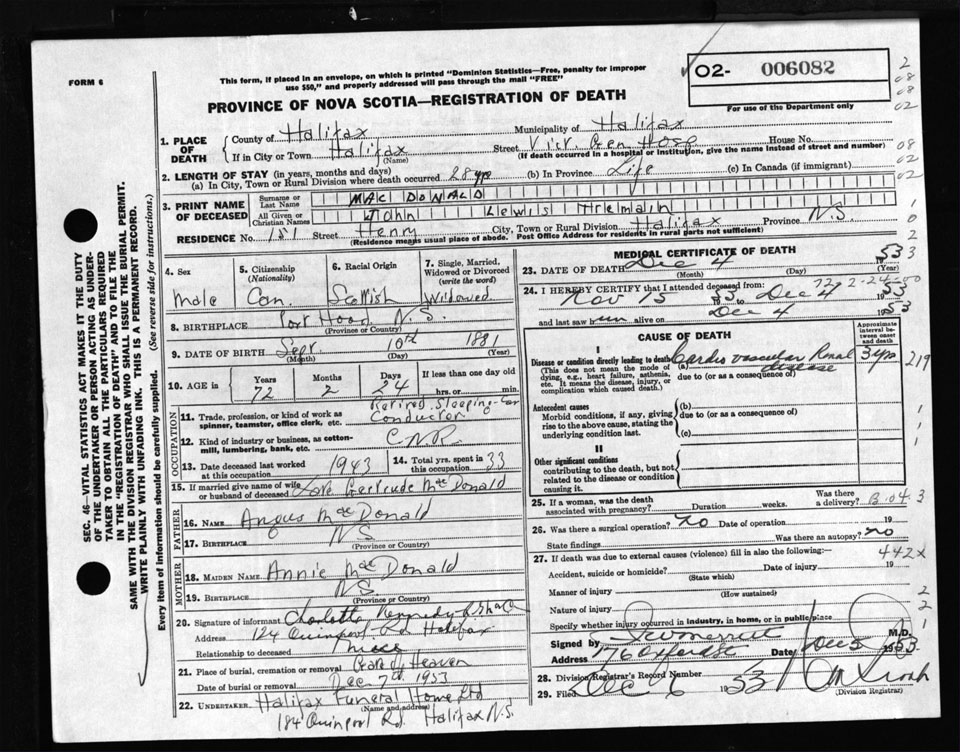 FORM 6
This form, if placed in an envelope, on which is printed "Dominion Statistics—Free, penalty for improper
use $50," and properly addressed will pass through the mail "FREE"
O2- 006082
For use of the Department only
PROVINCE OF NOVA SCOTIA—REGISTRATION OF DEATH
1. PLACE OF DEATH
County of Halifax Municipality of Halifax
If in City or Town Halifax (Name) Street Vict. Gen Hosp House No.
(If death occurred in a hospital or institution, give the name instead of street and number)
2. LENGTH OF STAY (in years, months and days)
(a) In City, Town or Rural Division where death occurred 28 yrs (b) In Province Life (c) In Canada (if immigrant)
3. PRINT NAME OF DECEASED
Surname or Last Name MAC DONALD
All Given or Christian Names John Lewis Tremain
RESIDENCE No. 151 Street Henry City, Town or Rural Division Halifax Province N.S.
(Residence means usual place of abode. Post Office Address for residents in rural parts not sufficient)
4. Sex Male
5. Citizenship (Nationality) Can.
6. Racial Origin Scottish
7. Single, Married, Widowed or Divorced (write the word) Widowed
8. BIRTHPLACE Port Hood N.S.
(Province or Country)
9. DATE OF BIRTH Sept. 10th 1881
(Month) (Day) (Year)
10. AGE in Years 72 Months 2 Days 24 If less than one day old hrs. or min.
OCCUPATION
11. Trade, profession, or kind of work as spinner, teamster, office clerk, etc. Retired Sleeping-Car Conductor
12. Kind of industry or business, as cotton-mill, lumbering, bank, etc. CNR
13. Date deceased last worked at this occupation 1943
14. Total yrs. spent in this occupation 33
15. If married give name of wife or husband of deceased Gertrude MacDonald
FATHER
16. NAME Angus MacDonald
17. BIRTHPLACE N.S.
(Province or Country)
MOTHER
18. MAIDEN NAME Annie MacDonald
19. BIRTHPLACE N.S.
(Province or Country)
20. Signature of informant Charlotte Kennedy
Address 124 Quinpool Rd Halifax
Relationship to deceased Niece
21. Place of burial, cremation or removal Gate of Heaven
Date of burial or removal Dec 7th 1953
22. UNDERTAKER Halifax Funeral Home Ltd
(Name and address)
184 Quinpool Rd. Halifax N.S.
MEDICAL CERTIFICATE OF DEATH
23. DATE OF DEATH Dec 4 1953
(Month) (Day) (Year)
24. I HEREBY CERTIFY that I attended deceased from:
Nov 15 1953 to Dec 4 1953
and last saw alive on Dec 4 1953
CAUSE OF DEATH
Approximate interval between onset and death
I
Disease or condition directly leading to death (a) Cardio vascular Renal disease 3 yrs
(This does not mean the mode of dying, e.g., heart failure, asthenia, etc. It means the disease, injury, or complication which caused death.)
due to (or as a consequence of)
Antecedent causes (b)
Morbid conditions, if any, giving rise to the above cause, stating the underlying condition last.
due to (or as a consequence of)
(c)
II
Other significant conditions
contributing to the death, but not related to the disease or condition causing it.
25. If a woman, was the death associated with pregnancy? Duration weeks. Was there a delivery?
26. Was there a surgical operation? no Date of operation 19
State findings Was there an autopsy? no
27. If death was due to external causes (violence) fill in also the following:—
Accident, suicide or homicide? Date of injury 19
(State which)
Manner of injury
(How sustained)
Nature of injury
Specify whether injury occurred in industry, in home, or in public place
Signed by M.D.
Address 176 Oxford St Date 1953
28. Division Registrar's Record Number
29. Filed Dec 1953
(Division Registrar)
219
442x
SEC. 46—VITAL STATISTICS ACT MAKES IT THE DUTY
OF THE UNDERTAKER OR PERSON ACTING AS UNDER-
TAKER TO OBTAIN ALL THE PARTICULARS REQUIRED
IN THE "REGISTRATION OF DEATH" AND TO FILE THE
SAME WITH THE DIVISION REGISTRAR WHO SHALL ISSUE THE BURIAL PERMIT.
WRITE PLAINLY WITH UNFADING INK. THIS IS A PERMANENT RECORD.
Every item of information should be carefully supplied. (See reverse side for instructions.)